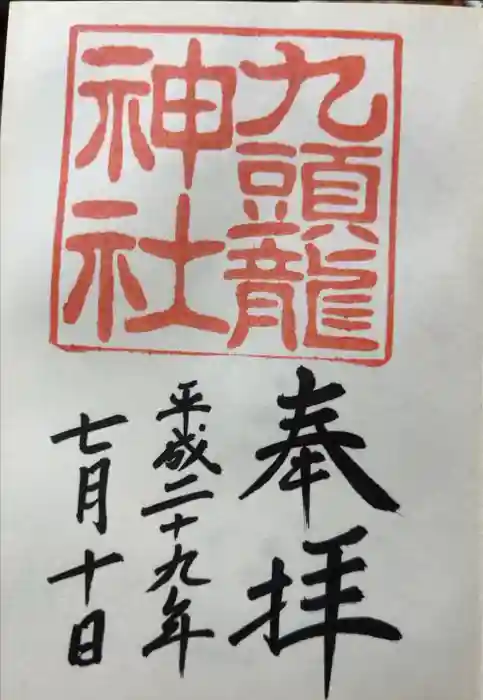 九頭龍
神社
奉拝
平成二十九年
七月十日